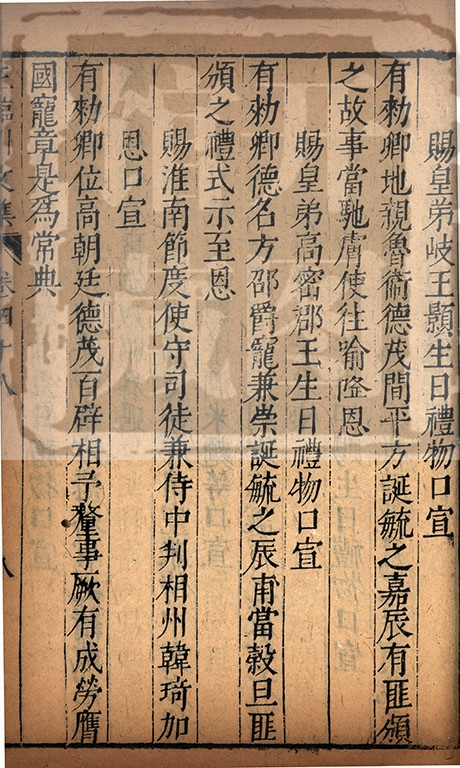 賜皇弟岐王顥生日禮物口宣
有勑卿地親魯衞德茂間平方誕毓之嘉辰有匪頒
之故事當馳膚使往喻隆恩
賜皇弟高密郡王生日禮物口宣
有勑卿德名方邵爵寵兼崇誕毓之辰甫當穀旦匪
頒之禮式示至恩
賜淮南節度使守司徒兼侍中判相州韓琦加
恩口宣
有勑卿位高朝廷德茂百辟相予釐事厥有成勞膺
國寵章是爲常典
臨川文集 卷四十八 八